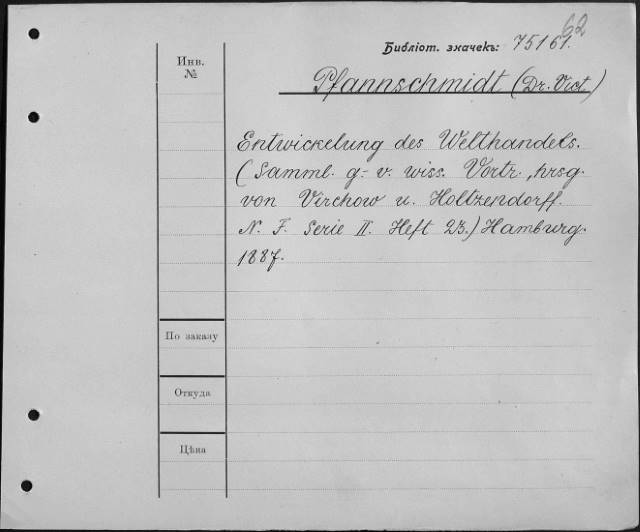 62
Библіот. значекъ: 75161.
Инв.
№
Pfannschmidt (Dr. Vict.)
Entwickelung des Welthandels.
(Samml. g.- v. wiss. Vortr., hrsg.
von Virchow u. Holtzendorff.
N. F. Serie II. Heft 23.) Hamburg.
1887.
По заказу
Откуда
Цѣна